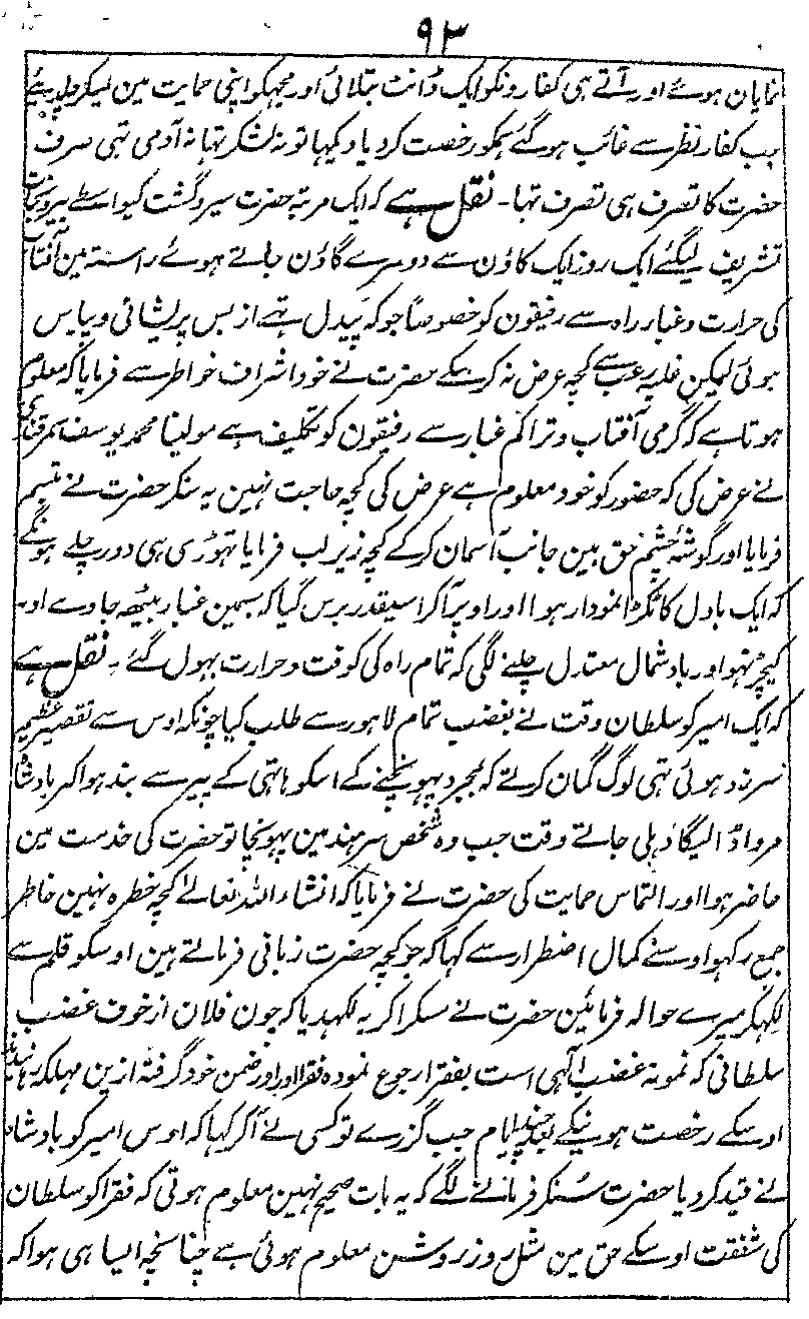 ۹۳
نمایان ہوئے اور آتے ہی کفارونکو ایک ڈانٹ بتلائی اور مجہکو اپنی حمایت مین لیکر چلدیئے
جب کفار نظر سے غائب ہوگئے ہمکو رخصت کردیا دیکہا تو نہ لشکر تہا نہ آدمی تہی صرف
حضرت کا تصرف ہی تصرف تہا۔ نقل ہے کہ ایک مرتبہ حضرت سیر و گشت کیواسطے بیرونجات
تشریف لیگئے ایک روز ایک گاؤن سے دوسرے گاؤن جاتے ہوئے راستہ مین آفتاب
کی حرارت و غبار راہ سے رفیقون کو خصوصاً جو کہ پَیدل تہے از بس پریشانی و پیاس
ہوئی لیکن غلبہ رعب سے کچہ عرض نہ کرسکے حضرت نے خود اشراف خواطر سے فرمایا کہ معلوم
ہوتا ہے کہ گرمی آفتاب و تراکم غبار سے رفیقون کو تکلیف ہے مولینا محمد یوسف سمرقندی
نے عرض کی کہ حضور کو خود معلوم ہے عرض کی کچہ حاجت نہین یہ سنکر حضرت نے تبسم
فرمایا اور گوشۂ چشم حق بین جانب آسمان کرکے کچہ زیر لب فرمایا تہوڑی ہی دور چلے ہونگے
کہ ایک بادل کا ٹکڑا نمودار ہوا اور اوپر آکر اسیقدر برس گیا کہ جسمین غبار بیٹھ جاوے اور
کیچڑ نہو اور باد شمال معتدل چلنے لگی کہ تمام راہ کی کوفت و حرارت بہول گئے ۔ نقل ہے
کہ ایک امیر کو سلطان وقت نے بغضب تمام لاہور سے طلب کیا چونکہ اوس سے تقصیر عظیم
سرزد ہوئی تہی لوگ گمان کرتے کہ بمجرد پہونچنے کے اسکو ہاتی کے پیر سے بندہواکر بادشاہ
مرواڈالیگا دہلی جاتے وقت جب وہ شخص سرہند مین پہونچا تو حضرت کی خدمت مین
حاضر ہوا اور التماس حمایت کی حضرت نے فرمایا کہ انشاء اللہ تعالےٰ کچہ خطرہ نہین خاطر
جمع رکہو اوسنے کمال اضطرار سے کہا کہ جو کچہ حضرت زبانی فرماتے ہین اوسکو قلم سے
لکہکر میرے حوالہ فرمائین حضرت نے مسکرا کر یہ لکہدیا کہ چون فلان از خوف غضب
سلطانی کہ نمونہ غضب الٰہی است بفقرا رجوع نمودہ فقرا اورا در ضمن خود گرفتہ ازین مہلکہ رہانیدند
اوسکے رخصت ہونیکے بعد چند ایام جب گزرے تو کسی نے آکر کہا کہ اوس امیر کو بادشاہ
نے قید کردیا حضرت سُنکر فرمانے لگے کہ یہ بات صحیح نہین معلوم ہوتی کہ فقرا کو سلطان
کی شفقت اوسکے حق مین مثل روز روشن معلوم ہوئی ہے چنانچہ ایسا ہی ہوا کہ